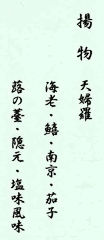 揚物 天婦羅
海老・鱚・南京・茄子
蕗の薹・隠元・塩味風味